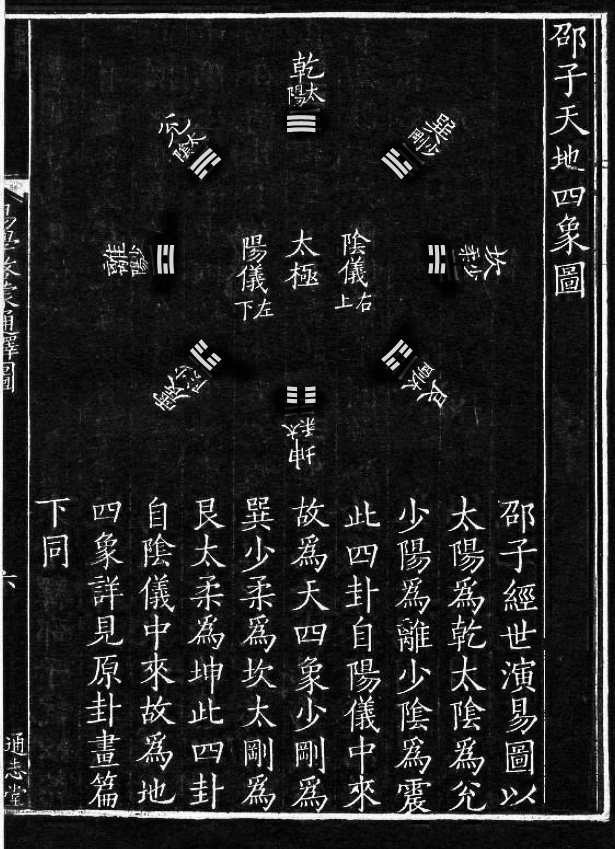 邵子天地四象圖
乾
太陽
巽
少剛
坎
少柔
艮
太剛
坤
太柔
震
少陰
離
少陽
兌
太陰
陰儀
右上
太極
陽儀
左下
邵子經世演易圖以
太陽為乾太陰為兌
少陽為離少陰為震
此四卦自陽儀中來
故為天四象少剛為
巽少柔為坎太剛為
艮太柔為坤此四卦
自陰儀中來故為地
四象詳見原卦畫篇
下同
六
通志堂